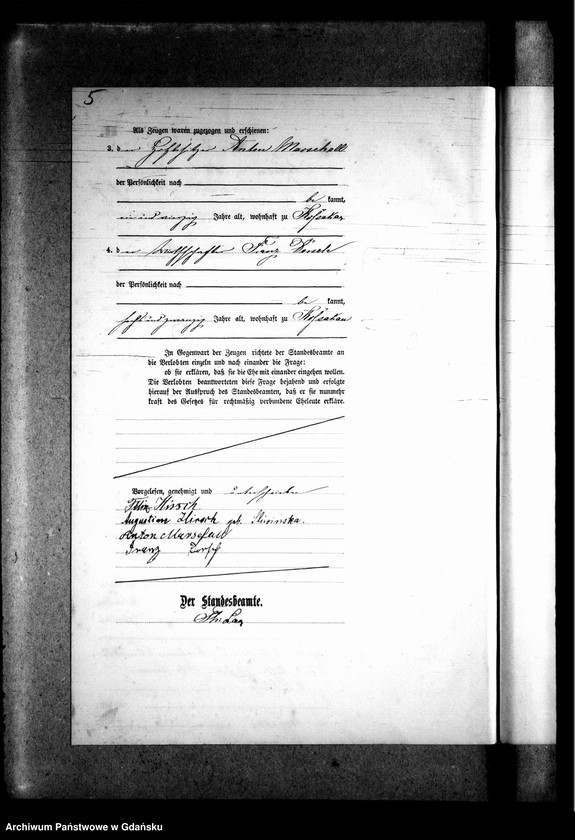 5
Als Zeugen waren zugezogen und erschienen:
3. der Hofbesitzer Anton Marschall
der Persönlichkeit nach
be kannt,
Jahre alt, wohnhaft zu Kossakau
4. der Franz
der Persönlichkeit nach
be kannt,
sechsundzwanzig Jahre alt, wohnhaft zu Kossakau
In Gegenwart der Zeugen richtete der Standesbeamte an
die Verlobten einzeln und nach einander die Frage:
ob sie erklären, daß sie die Ehe mit einander eingehen wollen.
Die Verlobten beantworteten diese Frage bejahend und erfolgte
hierauf der Ausspruch des Standesbeamten, daß er sie nunmehr
kraft des Gesetzes für rechtmäßig verbundene Eheleute erkläre.
Vorgelesen, genehmigt und unterschrieben
Hirsch
Hirsch geb.
Anton Marschall
Franz
Der Standesbeamte.
Archiwum Państwowe w Gdańsku